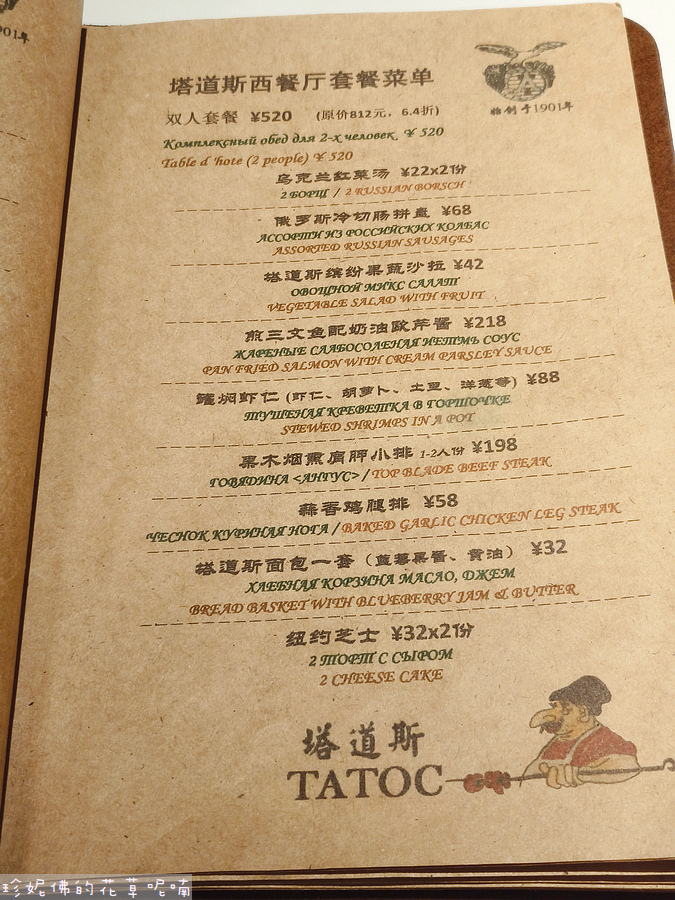 901年
塔道斯西餐厅套餐菜单
始创于1901年
双人套餐 ¥520 (原价812元，6.4折)
Комплексный обед для 2-х человек ¥ 520
Table d 'hote (2 people) ¥ 520
乌克兰红菜汤 ¥22x2份
2 БОРЩ / 2 RUSSIAN BORSCH
俄罗斯冷切肠拼盘 ¥68
АССОРТИ ИЗ РОССИЙСКИХ КОЛБАС
ASSORTED RUSSIAN SAUSAGES
塔道斯缤纷果蔬沙拉 ¥42
ОВОЩНОЙ МИКС САЛАТ
VEGETABLE SALAD WITH FRUIT
煎三文鱼配奶油欧芹酱 ¥218
ЖАРЕНЫЕ СЛАБОСОЛЕНАЯ НЕТМЬ СОУС
PAN FRIED SALMON WITH CREAM PARSLEY SAUCE
罐焖虾仁 (虾仁、胡萝卜、土豆、洋葱等) ¥88
ТУШЕНАЯ КРЕВЕТКА В ГОРШОЧКЕ
STEWED SHRIMPS IN A POT
果木烟熏肩胛小排 1-2人份 ¥198
ГОВЯДИНА <АНГУС> / TOP BLADE BEEF STEAK
蒜香鸡腿排 ¥58
ЧЕСНОК КУРИНАЯ НОГА / BAKED GARLIC CHICKEN LEG STEAK
塔道斯面包一套 (蓝莓果酱、黄油) ¥32
ХЛЕБНАЯ КОРЗИНА МАСЛО, ДЖЕМ
BREAD BASKET WITH BLUEBERRY JAM & BUTTER
纽约芝士 ¥32x2份
2 ТОРТ С СЫРОМ
2 CHEESE CAKE
塔道斯
TATOC
珍妮佛的花草呢喃